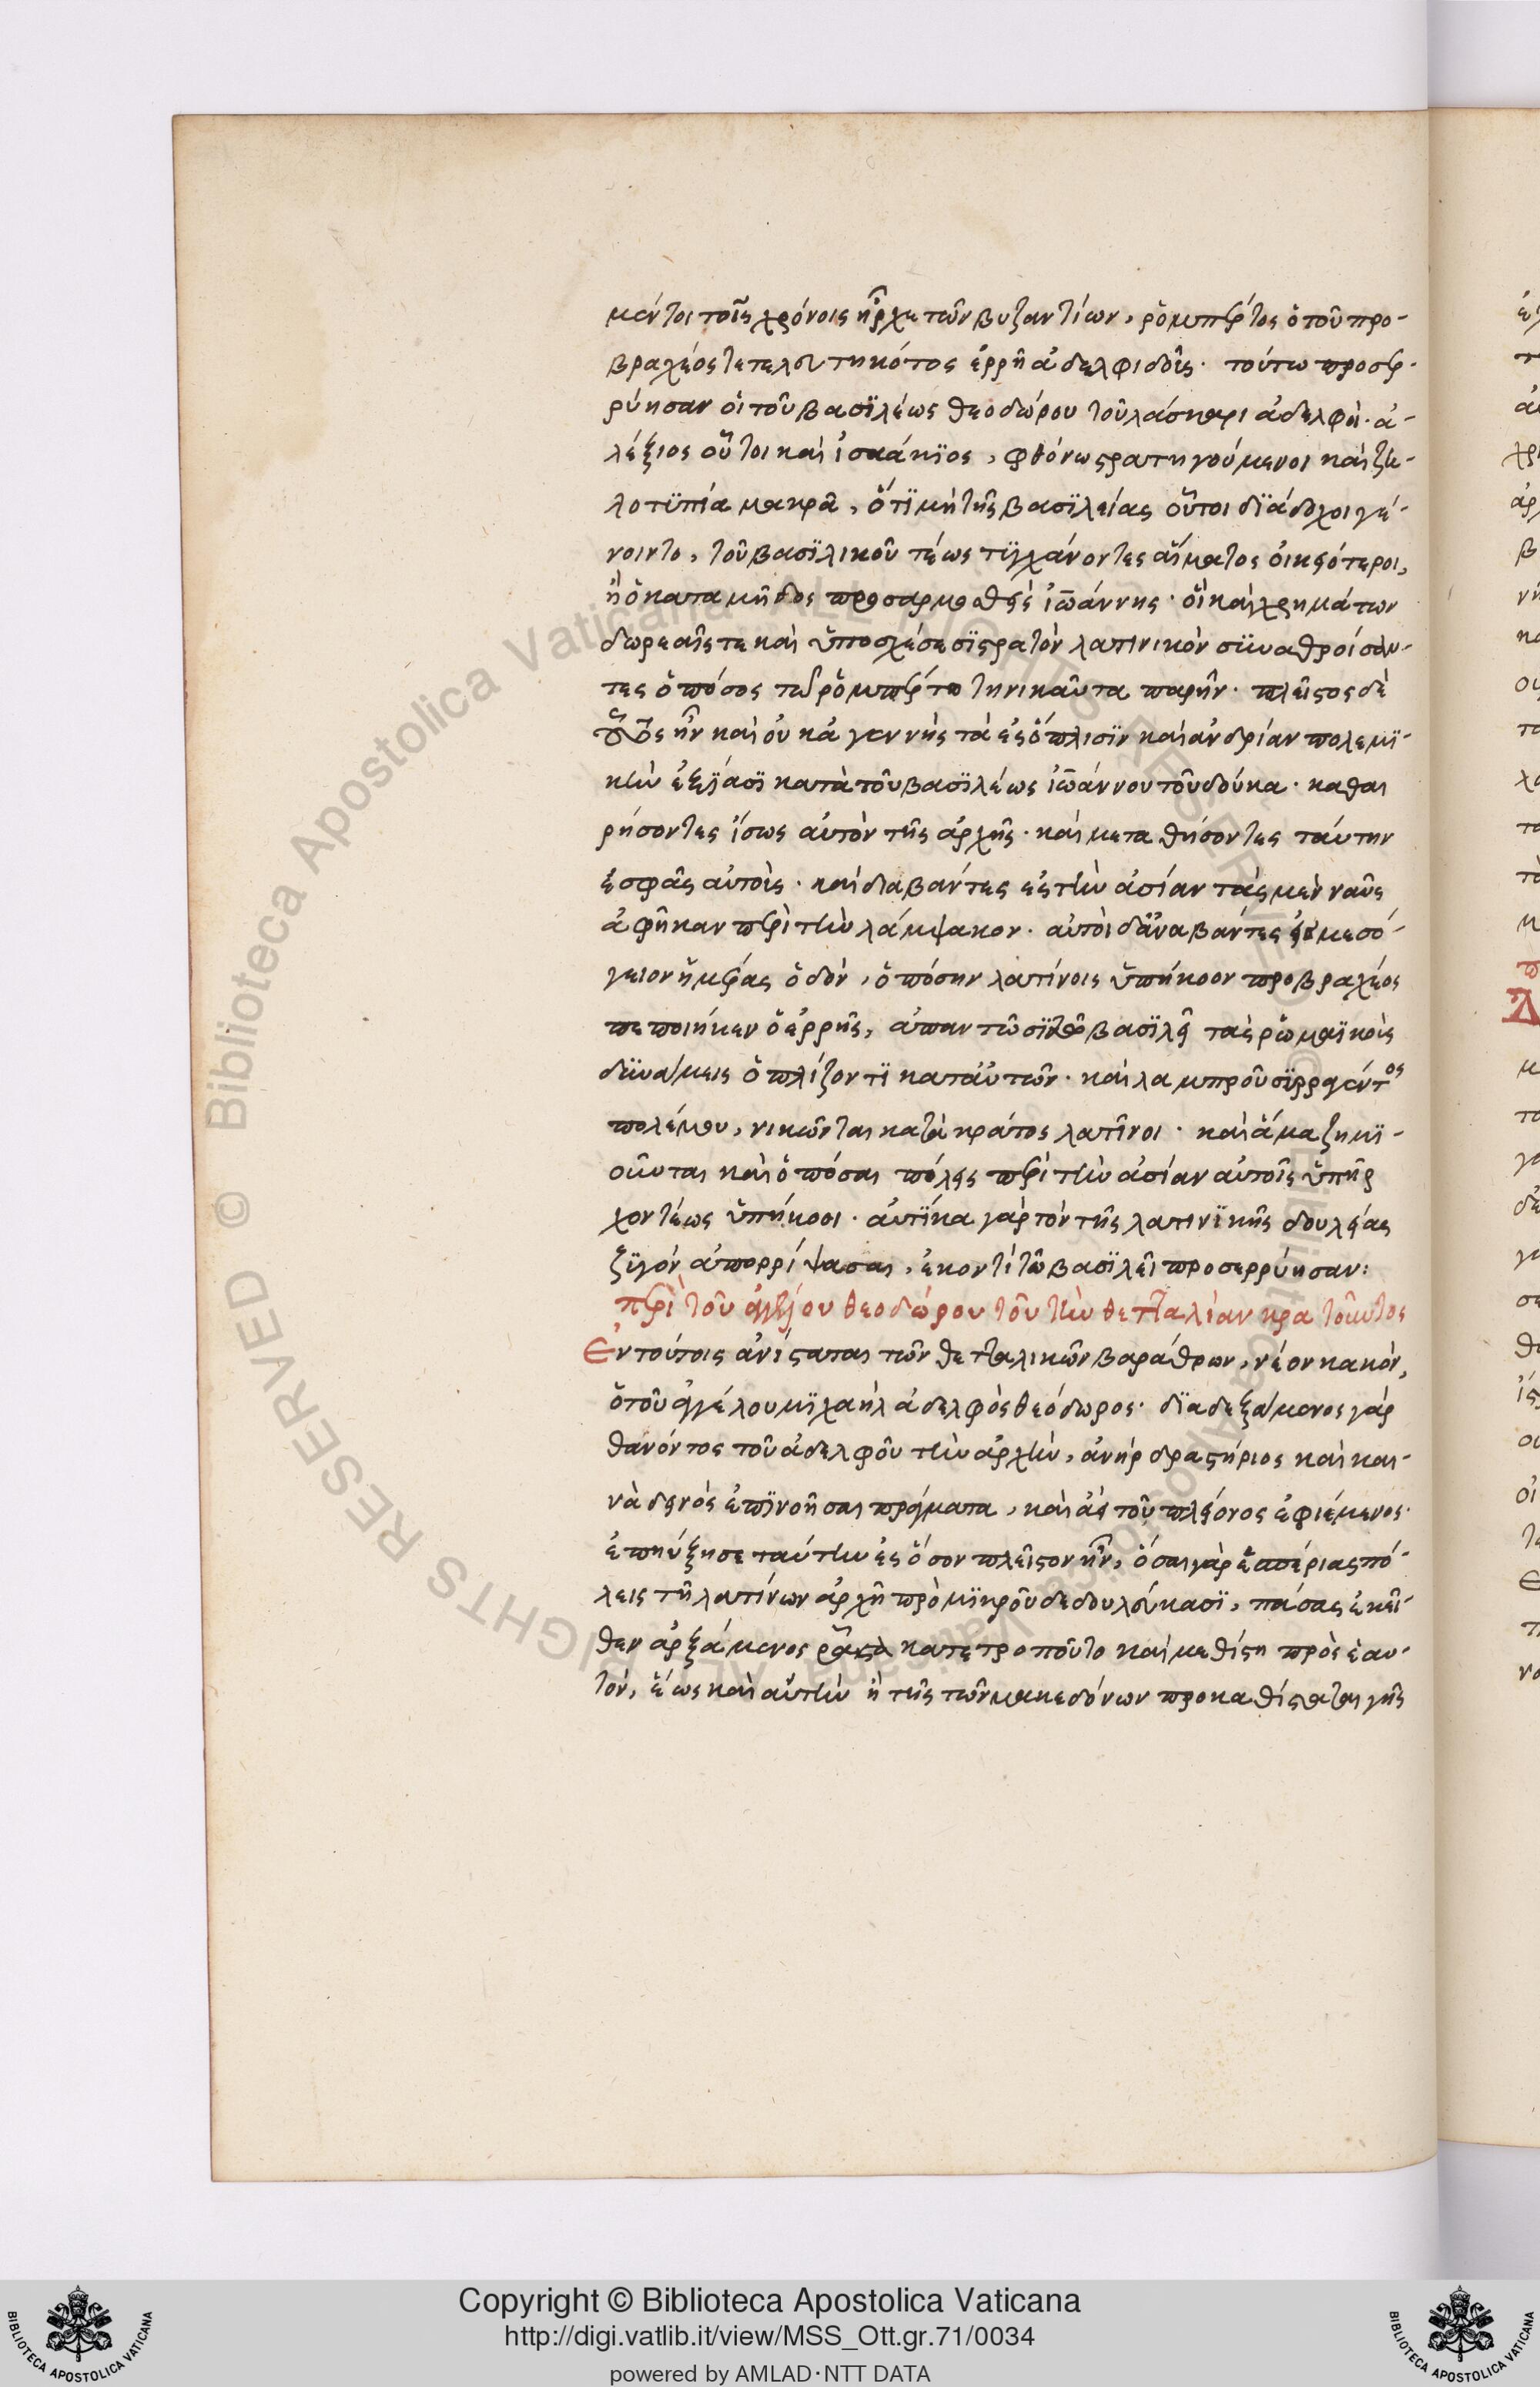 μέντοι τοῖς χρόνοις ἦρχε τῶν βυζαντίων, ῥομπέρτος ὁ τοῦ προ-
βραχέος τετελευτηκότος ἐρρῆ ἀδελφιδοῦς. τούτω προσερ-
ρύησαν οἱ τοῦ βασιλέως θεοδώρου τοῦ λάσκαρι ἀδελφοὶ. ἀ-
λέξιος οὗτοι καὶ ἰσαάκιος, φθόνω στρατηγούμενοι καὶ ζη-
λοτυπία μακρᾶ, ὅτι μὴ τῆς βασιλείας οὗτοι διάδοχοι γέ-
νοιντο, τοῦ βασιλικοῦ τέως τυγχάνοντες αἵματος οἰκειότεροι,
ἢ ὁ κατα κῆδος προσαρμοσθεὶς ἰωάννης. οἳ καὶ χρημάτων
δωρεαῖς τε καὶ ὑποσχέσεσι στρατὸν λατινικὸν συναθροίσαν-
τες ὁπόσος τῶ ῥομπέρτω τηνικαῦτα παρῆν. πλεῖστος δὲ
οὗτος ἦν καὶ οὐκ ἀγεννὴς τὰ ἐς ὅπλισιν καὶ ἀνδρίαν πολεμι-
κὴν ἐξίασι κατὰ τοῦ βασιλέως ἰωάννου τοῦ δούκα. καθαι
ρήσοντες ἴσως αὐτὸν τῆς ἀρχῆς. καὶ μεταθήσοντες ταύτην
ἐς σφᾶς αὐτοὺς. καὶ διαβάντες ἐς τὴν ἀσίαν τὰς μὲν ναῦς
ἀφῆκαν περὶ τὴν λάμψακον. αὐτοὶ δ' ἀναβάντες ἐς μεσό-
γειον ἡμέρας ὁδὸν, ὁπόσην λατίνοις ὑπήκοον προβραχέος
πεποιήκεν ὁ ἐρρῆς, ἀπαντῶσι τῶ βασιλεῖ τὰς ῥωμαϊκὰς
δυνάμεις ὁπλίζοντι κατ' αὐτῶν. καὶ λαμπροῦ συρραγέντος
πολέμου, νικῶνται κατὰ κράτος λατῖνοι. καὶ ἅμα ζημι-
οῦνται καὶ ὁπόσαι πόλεις περὶ τὴν ἀσίαν αὐτοῖς ὑπῆρ
χον τέως ὑπήκοοι. αὐτίκα γὰρ τὸν τῆς λατινικῆς δουλείας
ζυγὸν ἀπορρίψασαι, ἑκοντὶ τῶ βασιλεῖ προσερρύησαν:
περὶ τοῦ ἀγγέλου θεοδώρου τοῦ τὴν θετταλίαν κρατοῦντος
Ἐν τούτοις ἀνίσταται τῶν θετταλικῶν βαράθρων, νέον κακὸν,
ὁ τοῦ ἀγγέλου μιχαὴλ ἀδελφὸς θεόδωρος. διαδεξάμενος γὰρ
θανόντος τοῦ ἀδελφοῦ τὴν ἀρχὴν, ἀνὴρ δραστήριος καὶ και-
νὰ δεινὸς ἐπινοῆσαι πράγματα, καὶ ἀεὶ τοῦ πλείονος ἐφιέμενος.
ἐπηύξησε ταύτην ἐς ὅσον πλεῖστον ἦν, ὅσαι γὰρ ἑσπέριαι πό-
λεις τῆ λατίνων ἀρχῆ πρὸ μικροῦ δεδουλεύκασι, πάσας ἐκεῖ-
θεν ἀρξάμενος ῥᾶστα κατετροποῦτο καὶ μεθίστη πρὸς ἑαυ-
τὸν, ἕως καὶ αὐτὴν ἣ τῆς τῶν μακεδόνων προκαθίσταται γῆς
Copyright © Biblioteca Apostolica Vaticana
http://digi.vatlib.it/view/MSS_Ott.gr.71/0034
powered by AMLAD·NTT DATA